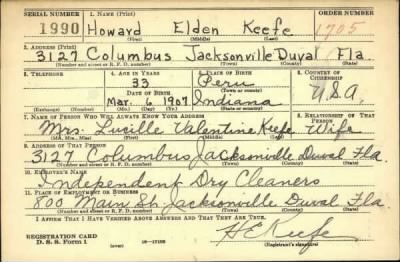 SERIAL NUMBER 1. NAME (Print) ORDER NUMBER
1990 Howard Elden Keefe 1705
(First) (Middle) (Last)
2. ADDRESS (Print)
3127 Columbus Jacksonville Duval Fla.
(Number and street or R. F. D. number) (Town) (County) (State)
3. TELEPHONE 4. AGE IN YEARS 5. PLACE OF BIRTH 6. COUNTRY OF CITIZENSHIP
33 Peru
DATE OF BIRTH (Town or county)
Mar. 6 1907 Indiana U.S.A.
(Exchange) (Number) (Mo.) (Day) (Yr.) (State or country)
7. NAME OF PERSON WHO WILL ALWAYS KNOW YOUR ADDRESS 8. RELATIONSHIP OF THAT PERSON
Mrs. Lucille Valentine Keefe Wife
(Mr., Mrs., Miss) (First) (Middle) (Last)
9. ADDRESS OF THAT PERSON
3127 Columbus Jacksonville Duval Fla.
(Number and street or R. F. D. number) (Town) (County) (State)
10. EMPLOYER'S NAME
Independent Dry Cleaners
11. PLACE OF EMPLOYMENT OR BUSINESS
800 Main St. Jacksonville Duval Fla.
(Number and street or R. F. D. number) (Town) (County) (State)
I AFFIRM THAT I HAVE VERIFIED ABOVE ANSWERS AND THAT THEY ARE TRUE.
REGISTRATION CARD
D. S. S. Form 1 16—17105 H E Keefe
(Registrant's signature)